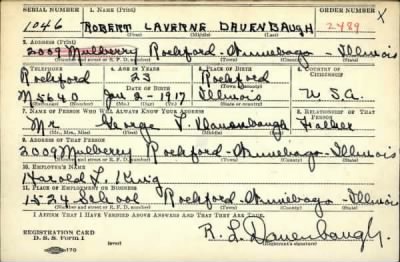 SERIAL NUMBER 1. NAME (Print) ORDER NUMBER X
1046 ROBERT LAVERNE DAUENBAUGH 2489
(First) (Middle) (Last)
2. ADDRESS (Print)
2009 Mulberry Rockford - Winnebago - Illinois
(Number and street or R. F. D. number) (Town) (County) (State)
3. TELEPHONE 4. AGE IN YEARS 5. PLACE OF BIRTH 6. COUNTRY OF CITIZENSHIP
Rockford 23 Rockford
DATE OF BIRTH (Town or county)
M5640 Jan 2 - 1917 Illinois U SA.
7. NAME OF PERSON WHO WILL ALWAYS KNOW YOUR ADDRESS 8. RELATIONSHIP OF THAT PERSON
Mr George V. Dauenbaugh Father
(Mr., Mrs., Miss) (First) (Middle) (Last)
9. ADDRESS OF THAT PERSON
2009 Mulberry Rockford - Winnebago - Illinois
(Number and street or R. F. D. number) (Town) (County) (State)
10. EMPLOYER'S NAME
Harold L. King
11. PLACE OF EMPLOYMENT OR BUSINESS
1524 School Rockford - Winnebago - Illinois
(Number and street or R. F. D. number) (Town) (County) (State)
I AFFIRM THAT I HAVE VERIFIED ABOVE ANSWERS AND THAT THEY ARE TRUE.
REGISTRATION CARD
D. S. S. Form 1 (over) R. L. Dauenbaugh.
(Registrant's signature)